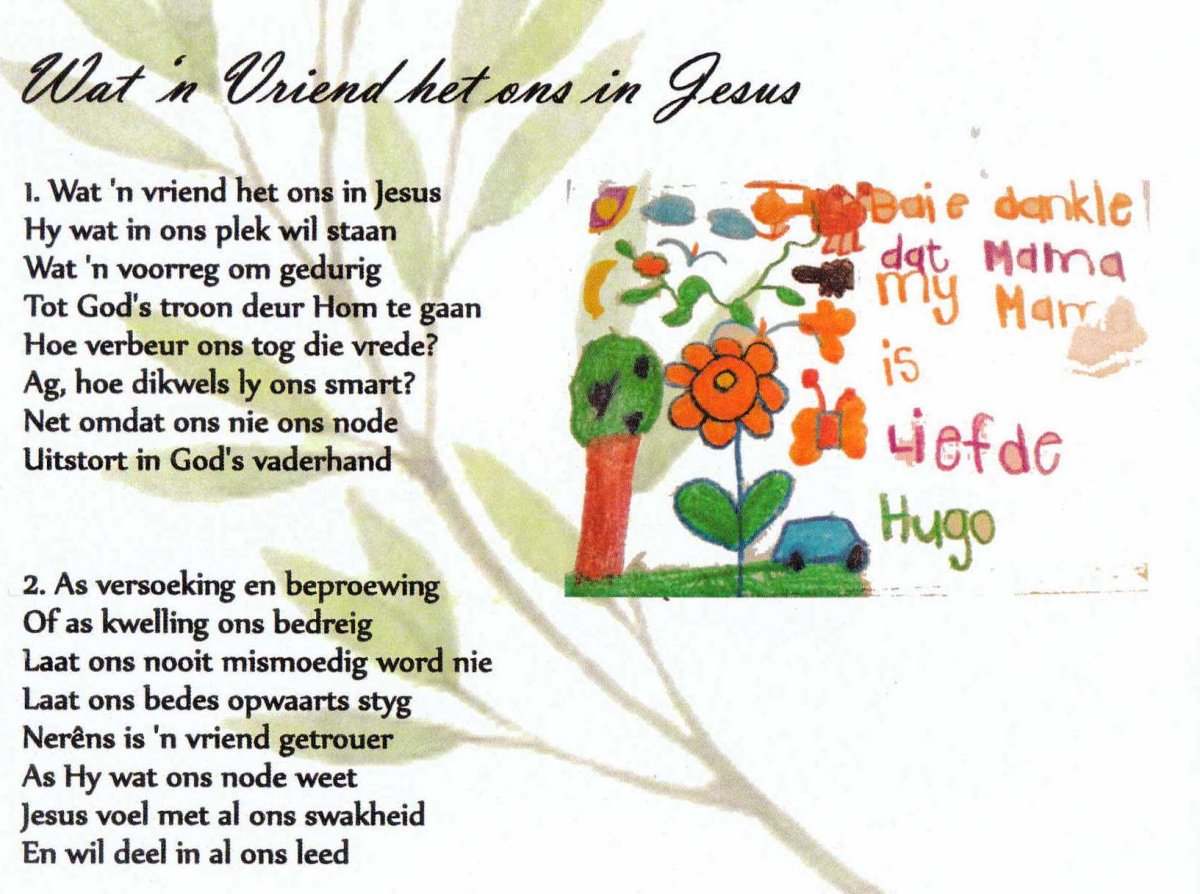 Wat 'n Vriend het ons in Jesus
1. Wat 'n vriend het ons in Jesus
Hy wat in ons plek wil staan
Wat 'n voorreg om gedurig
Tot God's troon deur Hom te gaan
Hoe verbeur ons tog die vrede?
Ag, hoe dikwels ly ons smart?
Net omdat ons nie ons node
Uitstort in God's vaderhand
2. As versoeking en beproewing
Of as kwelling ons bedreig
Laat ons nooit mismoedig word nie
Laat ons bedes opwaarts styg
Nerêns is 'n vriend getrouer
As Hy wat ons node weet
Jesus voel met al ons swakheid
En wil deel in al ons leed
Baie dankie
dat Mama
my
is
Liefde
Hugo